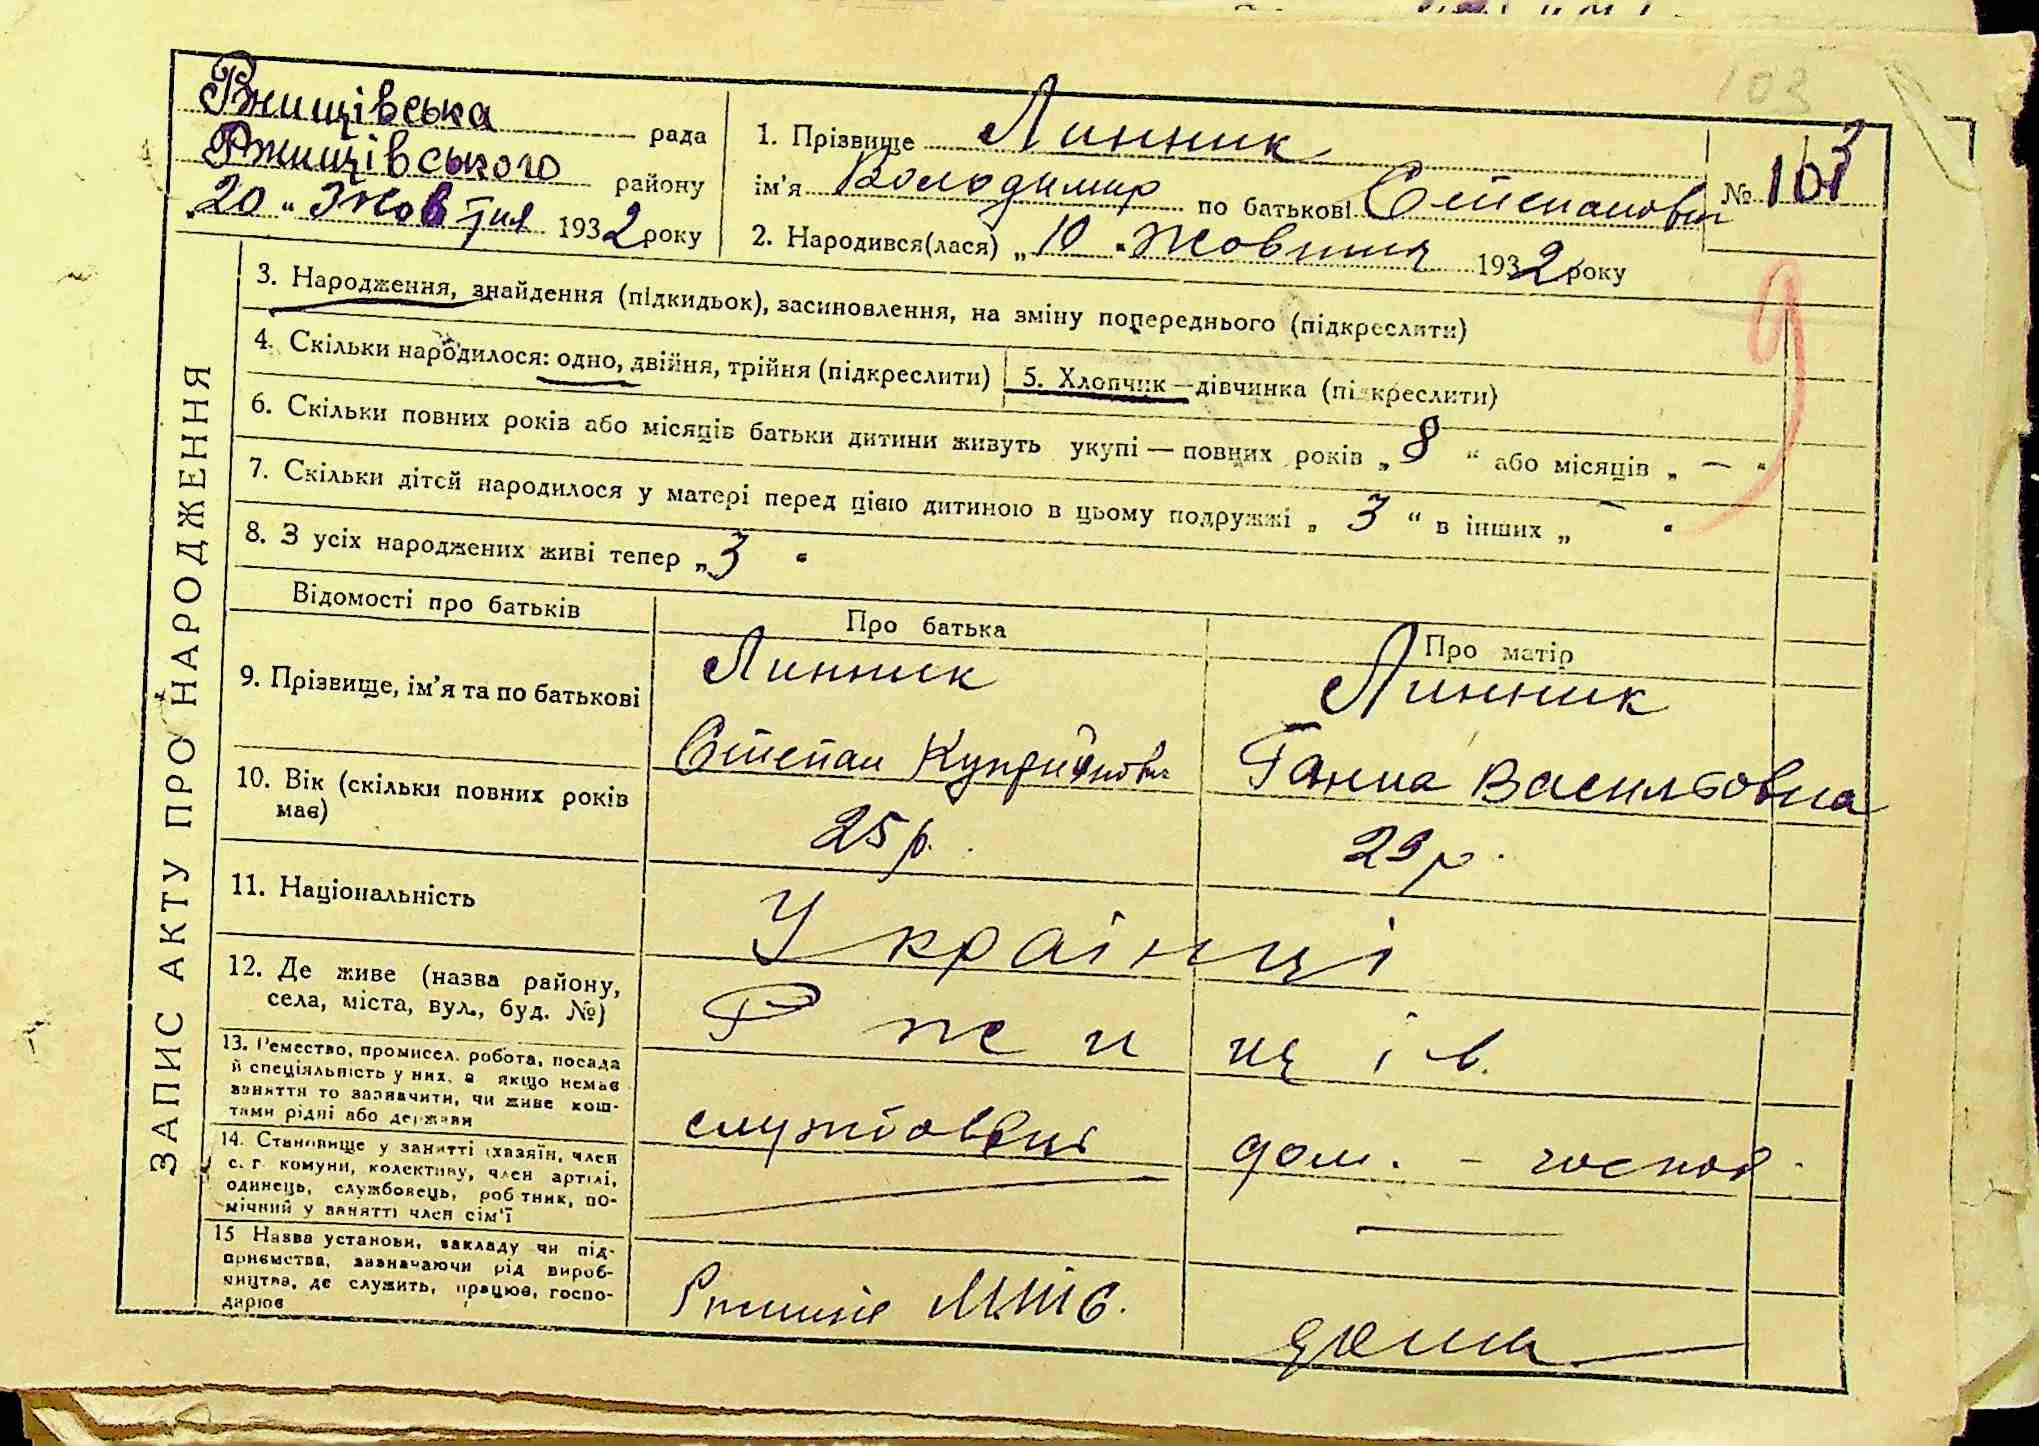 103
Ржищівська рада
Ржищівського району
„20" Жовтня 1932 року
1. Прізвище Линник
ім'я Володимир по батькові Степанович
2. Народився(лася) „10" Жовтня 1932 року
№ 103
ЗАПИС АКТУ ПРО НАРОДЖЕННЯ
3. Народження, знайдення (підкидьок), засиновлення, на зміну попереднього (підкреслити)
4. Скільки народилося: одно, двійня, трійня (підкреслити)
5. Хлопчик — дівчинка (підкреслити)
6. Скільки повних років або місяців батьки дитини живуть укупі — повних років „8" або місяців „—"
7. Скільки дітей народилося у матері перед цією дитиною в цьому подружжі „3" в інших „—"
8. З усіх народжених живі тепер „3"
Відомості про батьків
Про батька
Про матір
9. Прізвище, ім'я та по батькові
Линник
Степан Купріянович
Линник
Ганна Васильовна
10. Вік (скільки повних років
має)
25 р.
29 р.
11. Національність
Українці
12. Де живе (назва району,
села, міста, вул., буд. №)
Ржищів.
13. Ремество, промисел, робота, посада
й спеціяльність у них, а якщо немає
заняття то зазначити, чи живе кош-
тами рідні або держави
службовець
дом. - господ.
14. Становище у занятті (хазяїн, член
с. г. комуни, колективу, член артілі,
одинець, службовець, робітник, по-
мічний у занятті член сім'ї
—
—
15 Назва установи, закладу чи під-
приємства, зазначаючи рід вироб-
ництва, де служить, працює, госпо-
дарює
МТС.
дома